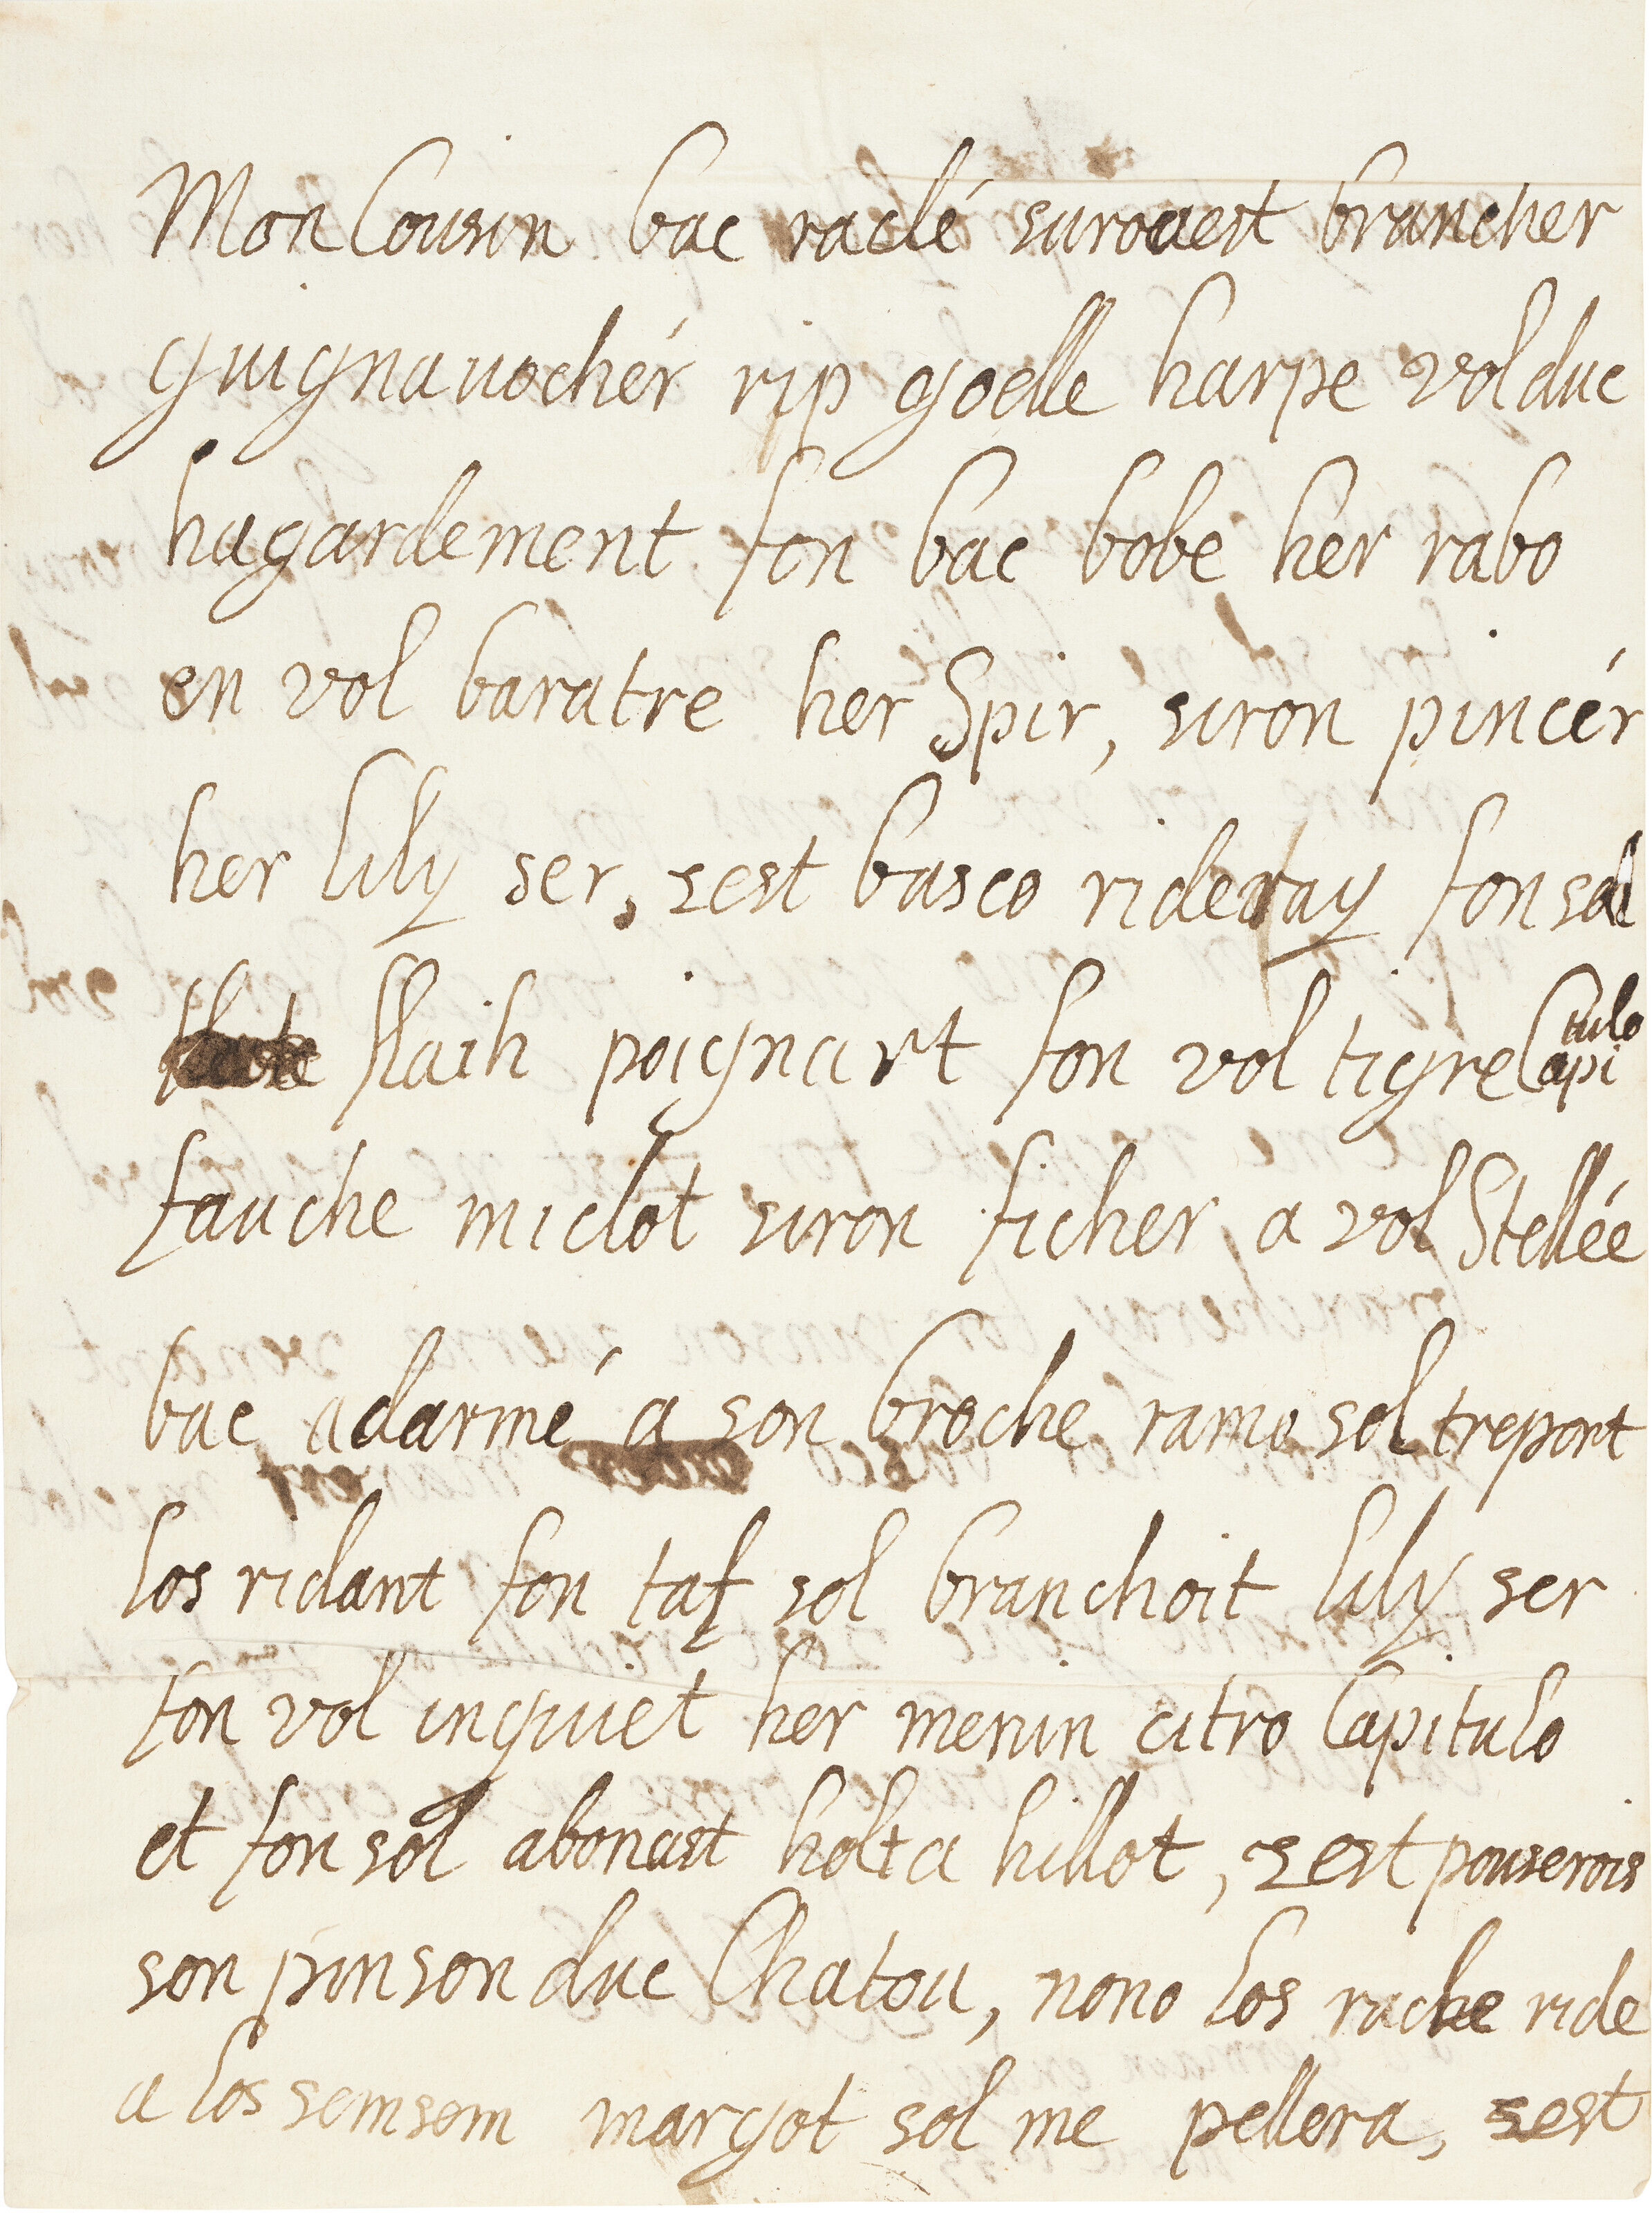 Mon Cousin bac raclé suroaest brancher
guignauochér rip goelle harpe vol duc
hagardement fon bac bobe her rabo
en vol baratre her Spir, siron pincér
her lily ser, sest basco rideray fon sal
flaih poignart fon vol tigre Capitulo
fauche miclot siron ficher a vol Stellée
bac adarmé a son broche ramo sol treport
los ridant fon taf sol branchoit lily ser
fon vol inquiet her menin citro Capitulo
et fon sol abonast holta hillot, sest pouserois
son pinson duc Chatou, nono los rache ride
a los semsem margot sol me pellera, sest